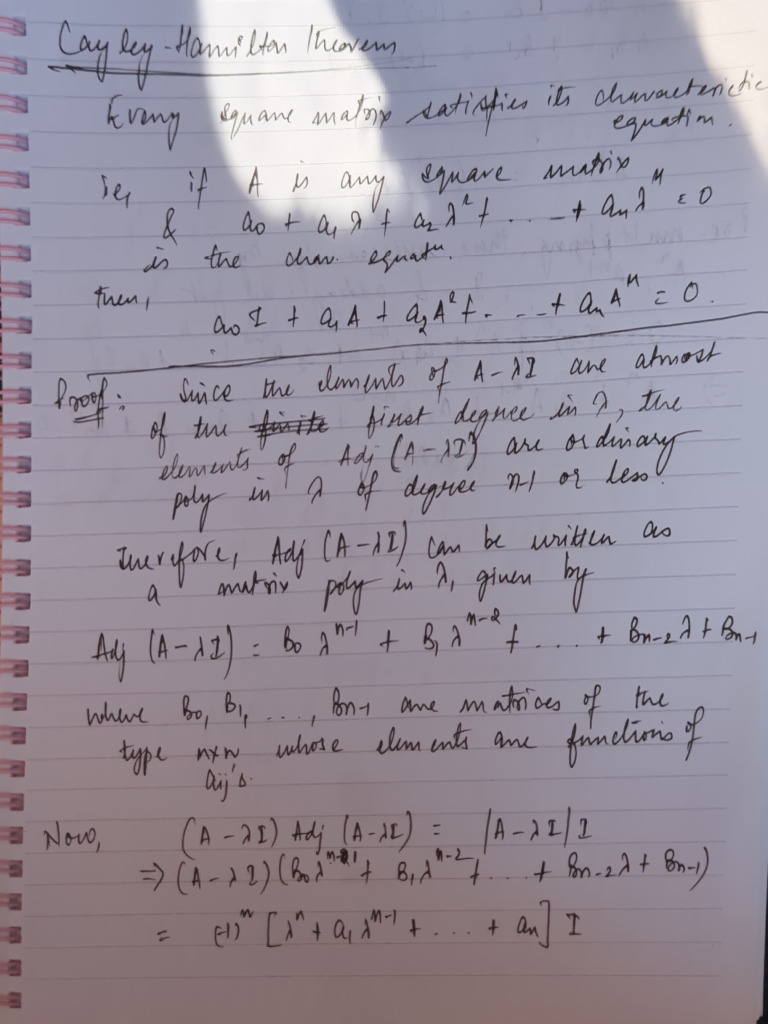 Cayley-Hamilton Theorem
Every square matrix satisfies its characteristic
equation.
ie, if A is any square matrix
& a₀ + a₁λ + a₂λ² + . . . – + aₙλⁿ = 0
is the char. equatⁿ.
then,
a₀I + a₁A + a₂A² + . . . – + aₙAⁿ = 0.
Proof : Since the elements of A-λI are atmost
of the ~~finite~~ first degree in λ, the
elements of Adj (A-λI) are ordinary
poly in λ of degree n-1 or less.
Therefore, Adj (A-λI) can be written as
a matrix poly in λ, given by
Adj (A-λI) = B₀ λⁿ⁻¹ + B₁ λⁿ⁻² + . . . . + Bₙ₋₂ λ + Bₙ₋₁
where B₀, B₁, . . ., Bₙ₋₁ are matrices of the
type n×n whose elements are functions of
aᵢⱼ's.
Now, (A-λI) Adj (A-λI) = |A-λI| I
⇒ (A-λI) (B₀λⁿ⁻¹ + B₁λⁿ⁻² + . . . + Bₙ₋₂λ + Bₙ₋₁)
= (-1)ⁿ [λⁿ + a₁ λⁿ⁻¹ + . . . . + aₙ] I